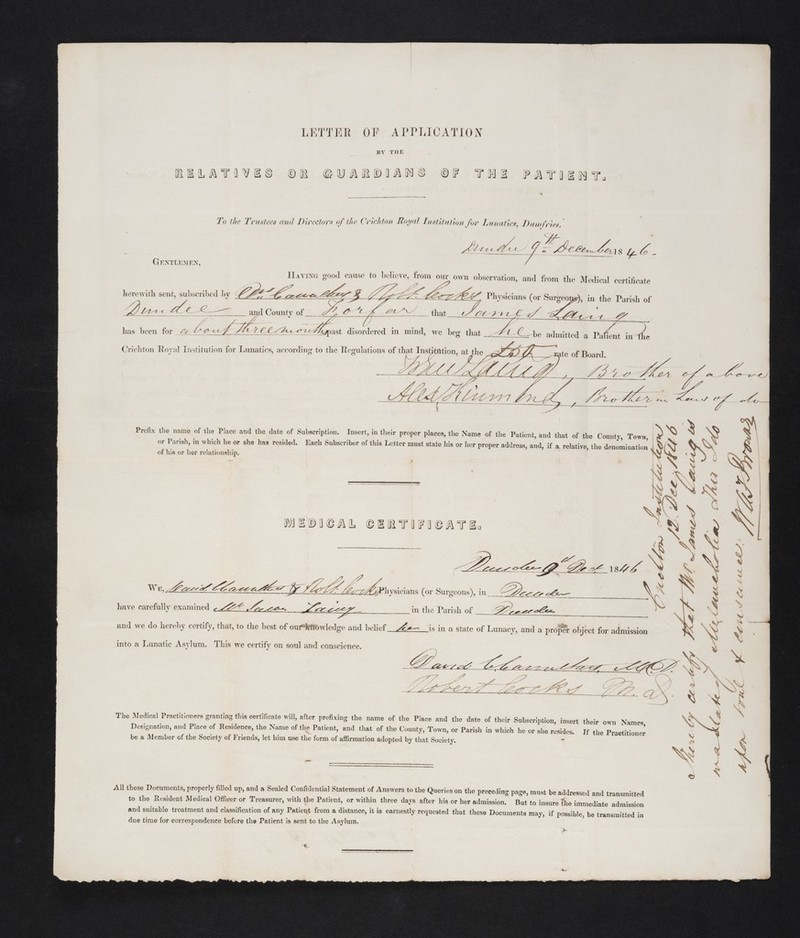 LETTER OF APPLICATION
BY THE
RELATIVES OR GUARDIANS OF THE PATIENT.
To the Trustees and Directors of the Crichton Royal Institution for Lunatics, Dumfries.
Dundee 9th December 1846.
GENTLEMEN,
HAVING good cause to believe, from our own observation, and from the Medical certificate
herewith sent, subscribed by & Robt. Cocks Physicians (or Surgeons), in the Parish of
Dundee and County of Forfar that James Laing
has been for about three months past disordered in mind, we beg that he be admitted a Patient in the
Crichton Royal Institution for Lunatics, according to the Regulations of that Institution, at the rate of Board.
Laing, Brother of above
Alex Kinmond, Brother in Law of do
Prefix the name of the Place and the date of Subscription. Insert, in their proper places, the Name of the Patient, and that of the County, Town,
or Parish, in which he or she has resided. Each Subscriber of this Letter must state his or her proper address, and, if a relative, the denomination
of his or her relationship.
MEDICAL CERTIFICATE.
Dundee 9th Dec 1846
WE, David & Robt. Cocks Physicians (or Surgeons), in Dundee
have carefully examined Mr James Laing in the Parish of Dundee
and we do hereby certify, that, to the best of our knowledge and belief he is in a state of Lunacy, and a proper object for admission
into a Lunatic Asylum. This we certify on soul and conscience.
David M.D.
Robert Cocks
The Medical Practitioners granting this certificate will, after prefixing the name of the Place and the date of their Subscription, insert their own Names,
Designation, and Place of Residence, the Name of the Patient, and that of the County, Town, or Parish in which he or she resides. If the Practitioner
be a Member of the Society of Friends, let him use the form of affirmation adopted by that Society.
All these Documents, properly filled up, and a Sealed Confidential Statement of Answers to the Queries on the preceding page, must be addressed and transmitted
to the Resident Medical Officer or Treasurer, with the Patient, or within three days after his or her admission. But to insure the immediate admission
and suitable treatment and classification of any Patient from a distance, it is earnestly requested that these Documents may, if possible, be transmitted in
due time for correspondence before the Patient is sent to the Asylum.
Crichton Institution
12 Dec 1846
I hereby certify that Mr James Laing is
Melancholia This I do
upon Soul & conscience. W A F Browne